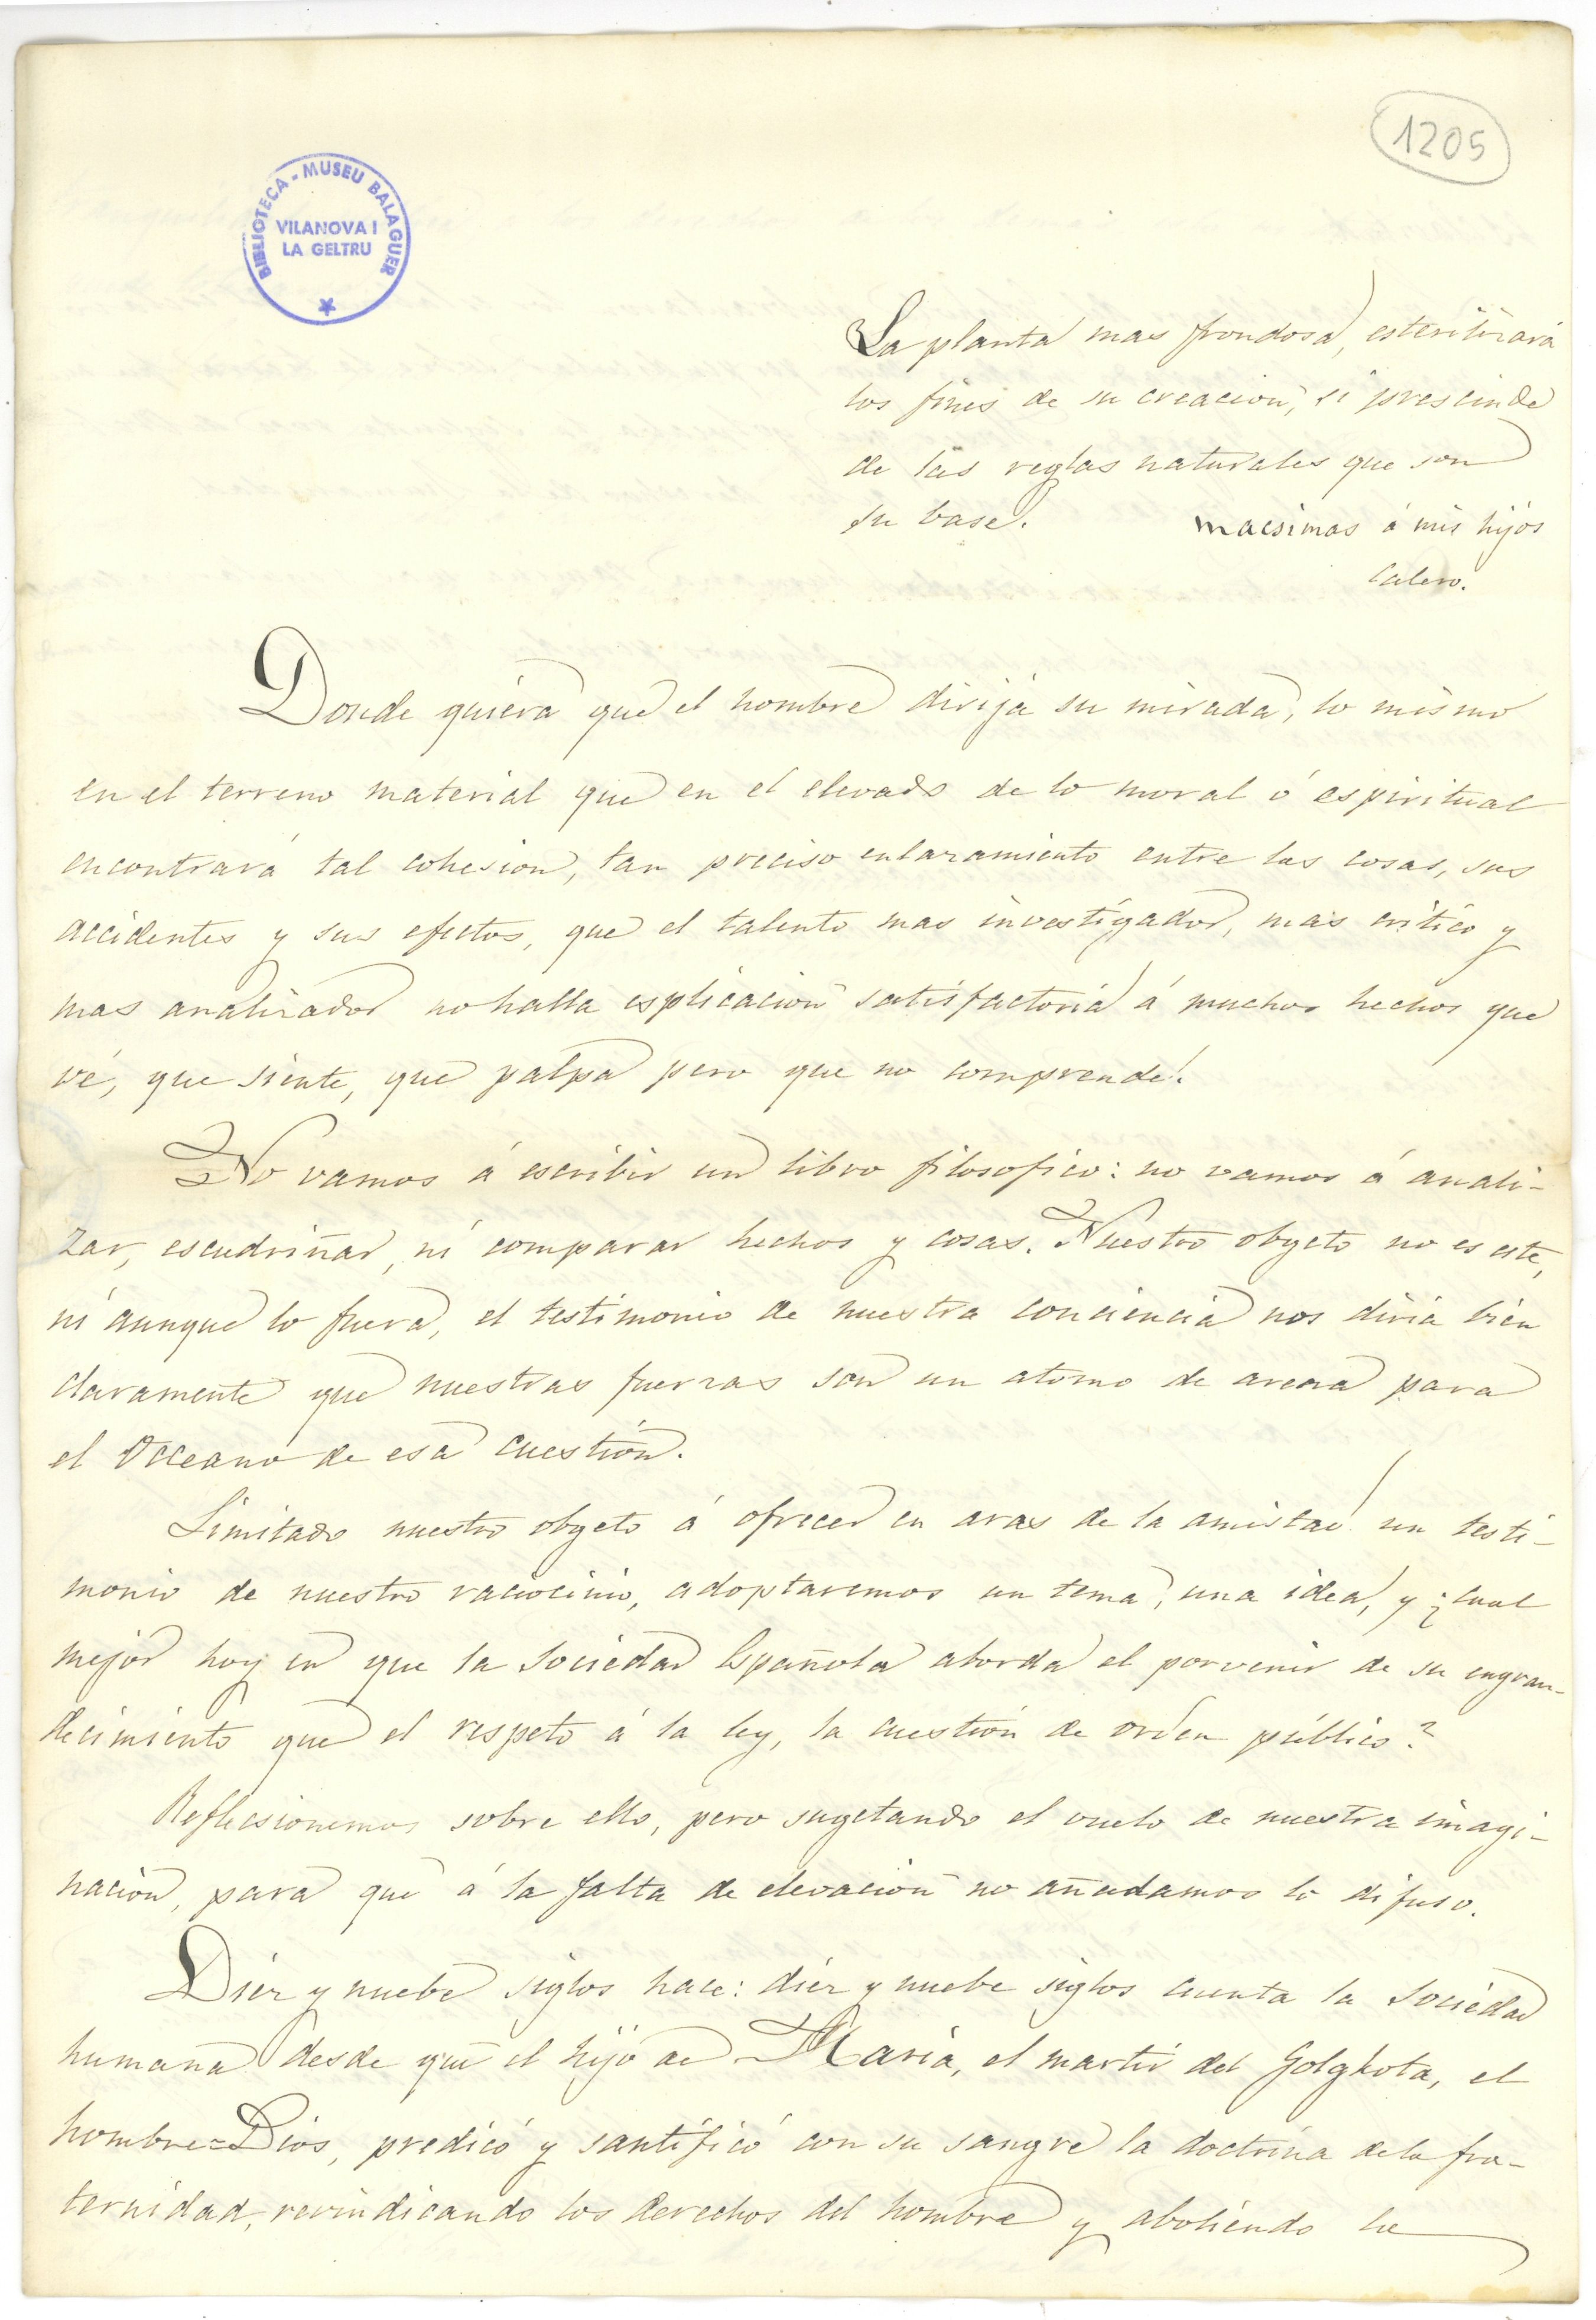 1205
BIBLIOTECA - MUSEU BALAGUER
VILANOVA I
LA GELTRU
La planta mas frondosa, esterilizará
los fines de su creacion, si prescinde
de las reglas naturales que son
su base. Macsimas á mis hijos
Calero.
Donde quiera que el hombre dirija su mirada, lo mismo
en el terreno material que en el elevado de lo moral ó espiritual
encontrará tal cohesion, tan preciso enlazamiento entre las cosas, sus
accidentes y sus efectos, que el talento mas investigador, mas critico y
mas analizador no halla esplicacion satisfactoria á muchos hechos que
vé, que siente, que palpa pero que no comprende.
No vamos á escribir un libro filosofico: no vamos á anali-
zar, escudriñar, ni comparar hechos y cosas. Nuestro obgeto no es este,
ni aunque lo fuera, el testimonio de nuestra conciencia nos diria bien
claramente que nuestras fuerzas son un atomo de arena para
el Occeano de esa cuestión.
Limitado nuestro obgeto á ofrecer en aras de la amistad un testi-
monio de nuestro raciocinio, adoptaremos un tema, una idea, y ¿cual
mejor hoy en que la Sociedad Española aborda el porvenir de su engran-
decimiento que el respeto á la ley, la cuestión de orden público?
Reflecsionemos sobre ello, pero sugetando el vuelo de nuestra imagi-
nacion, para que á la falta de elevacion no añadamos lo difuso.
Diez y nuebe siglos hace: diez y nuebe siglos cuenta la Sociedad
humana desde que el hijo de Maria, el martir del Golghota, el
hombre=Dios, predicó y santificó con su sangre la doctrina de la fra-
ternidad, revindicando los derechos del hombre y aboliendo la